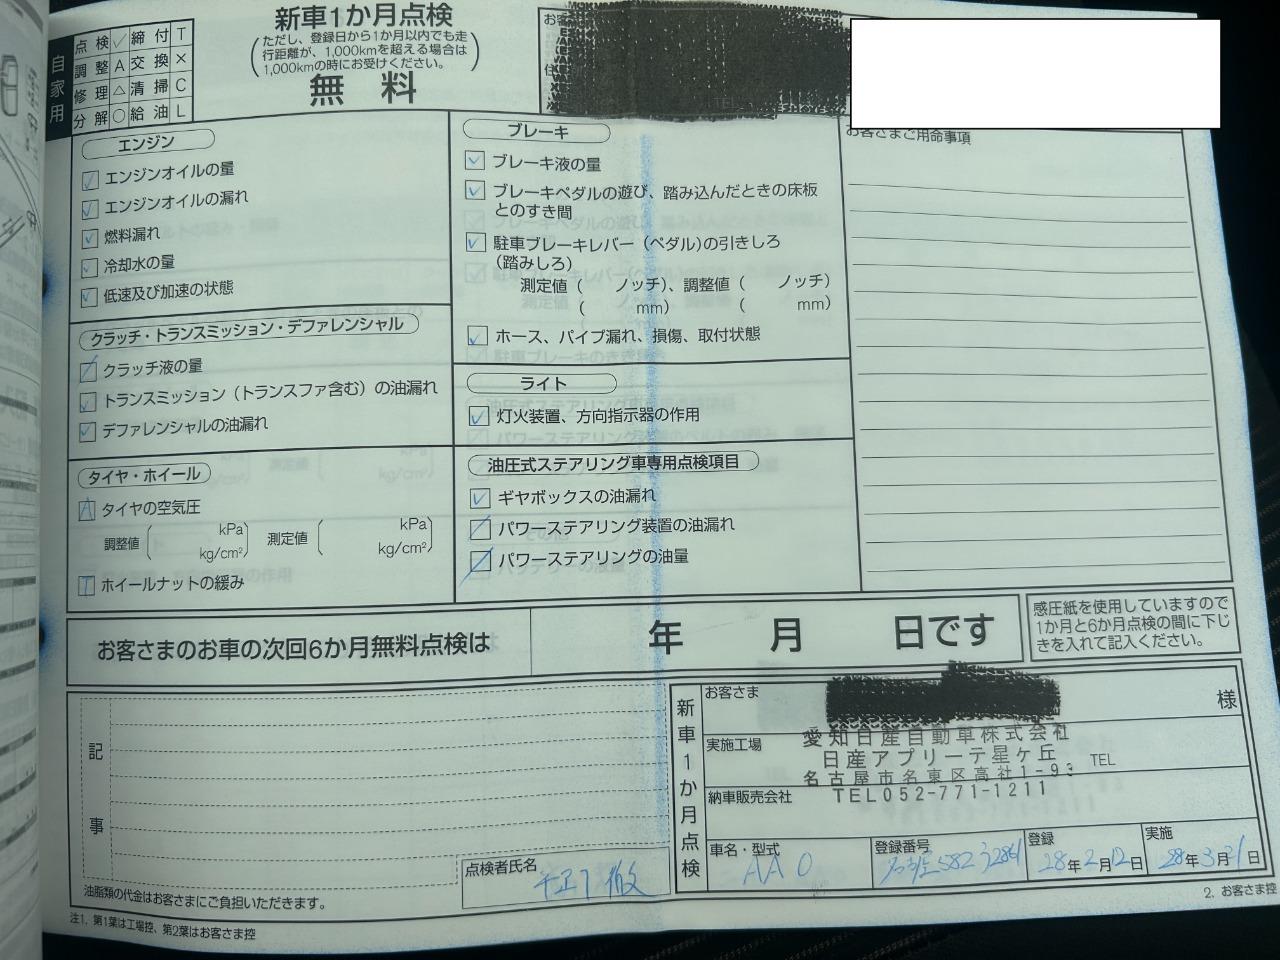 自家用
点検 ✓ 締付 T
調整 A 交換 ×
修理 △ 清掃 C
分解 ○ 給油 L
新車1か月点検
(ただし、登録日から1か月以内でも走
行距離が、1,000kmを超える場合は
1,000kmの時にお受けください。)
無料
TEL
エンジン
エンジンオイルの量
エンジンオイルの漏れ
燃料漏れ
冷却水の量
低速及び加速の状態
クラッチ・トランスミッション・デファレンシャル
クラッチ液の量
トランスミッション(トランスファ含む)の油漏れ
デファレンシャルの油漏れ
タイヤ・ホイール
A タイヤの空気圧
調整値 ( kPa kg/cm² ) 測定値 ( kPa kg/cm² )
T ホイールナットの緩み
ブレーキ
ブレーキ液の量
ブレーキペダルの遊び、踏み込んだときの床板
とのすき間
駐車ブレーキレバー(ペダル)の引きしろ
(踏みしろ)
測定値 ( ノッチ)、調整値 ( ノッチ)
( mm) ( mm)
ホース、パイプ漏れ、損傷、取付状態
ライト
灯火装置、方向指示器の作用
油圧式ステアリング車専用点検項目
ギヤボックスの油漏れ
パワーステアリング装置の油漏れ
パワーステアリングの油量
お客さまご用命事項
お客さまのお車の次回6か月無料点検は 年 月 日です
感圧紙を使用していますので
1か月と6か月点検の間に下じ
きを入れて記入ください。
記事
油脂類の代金はお客さまにご負担いただきます。
点検者氏名
新車1か月点検
お客さま 様
実施工場
愛知日産自動車株式会社
日産アプリーテ星ヶ丘
名古屋市名東区高社1-93 TEL
納車販売会社
TEL052-771-1211
車名・型式 AA0
登録番号
登録 28年2月12日
実施 28年3月21日
注1. 第1葉は工場控、第2葉はお客さま控
2. お客さま控